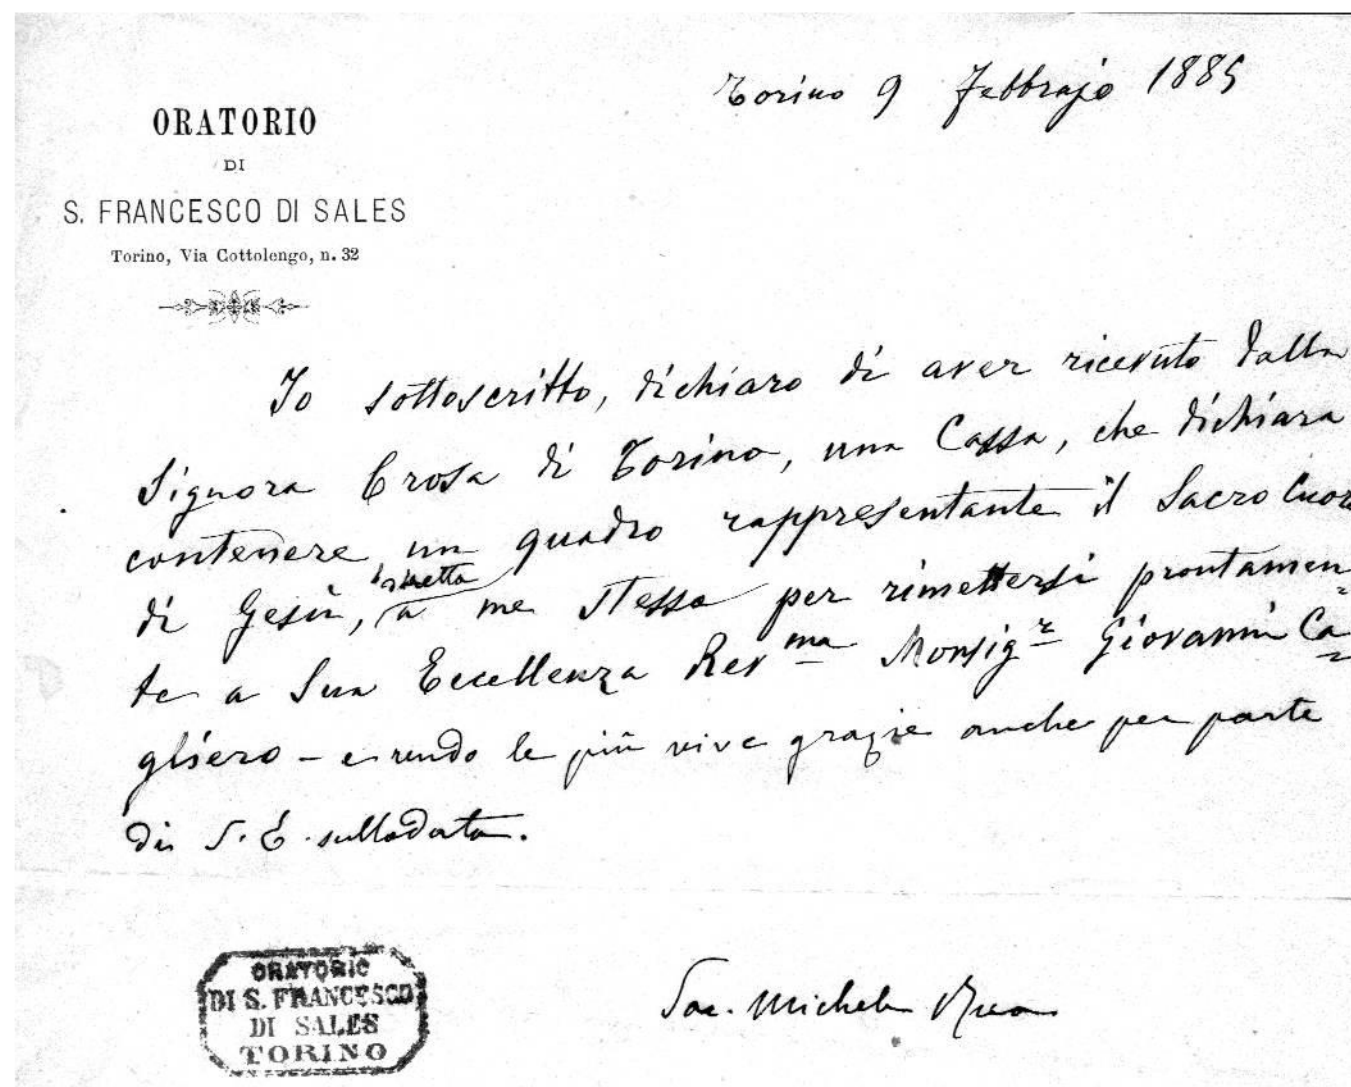 Torino 9 Febbrajo 1885
ORATORIO
DI
S. FRANCESCO DI SALES
Torino, Via Cottolengo, n. 32
Io sottoscritto, dichiaro di aver ricevuto dalla
Signora Crosa di Torino, una Cassa, che dichiara
contenere un quadro rappresentante il Sacro Cuore
di Gesù, diretta a me stesso per rimettersi prontamen=
te a Sua Eccellenza Revma Monsigr Giovanni Ca=
gliero – e rendo le più vive grazie anche per parte
di S. E. sullodata.
Sac. Michele Rua
ORATORIO
DI S. FRANCESCO
DI SALES
TORINO